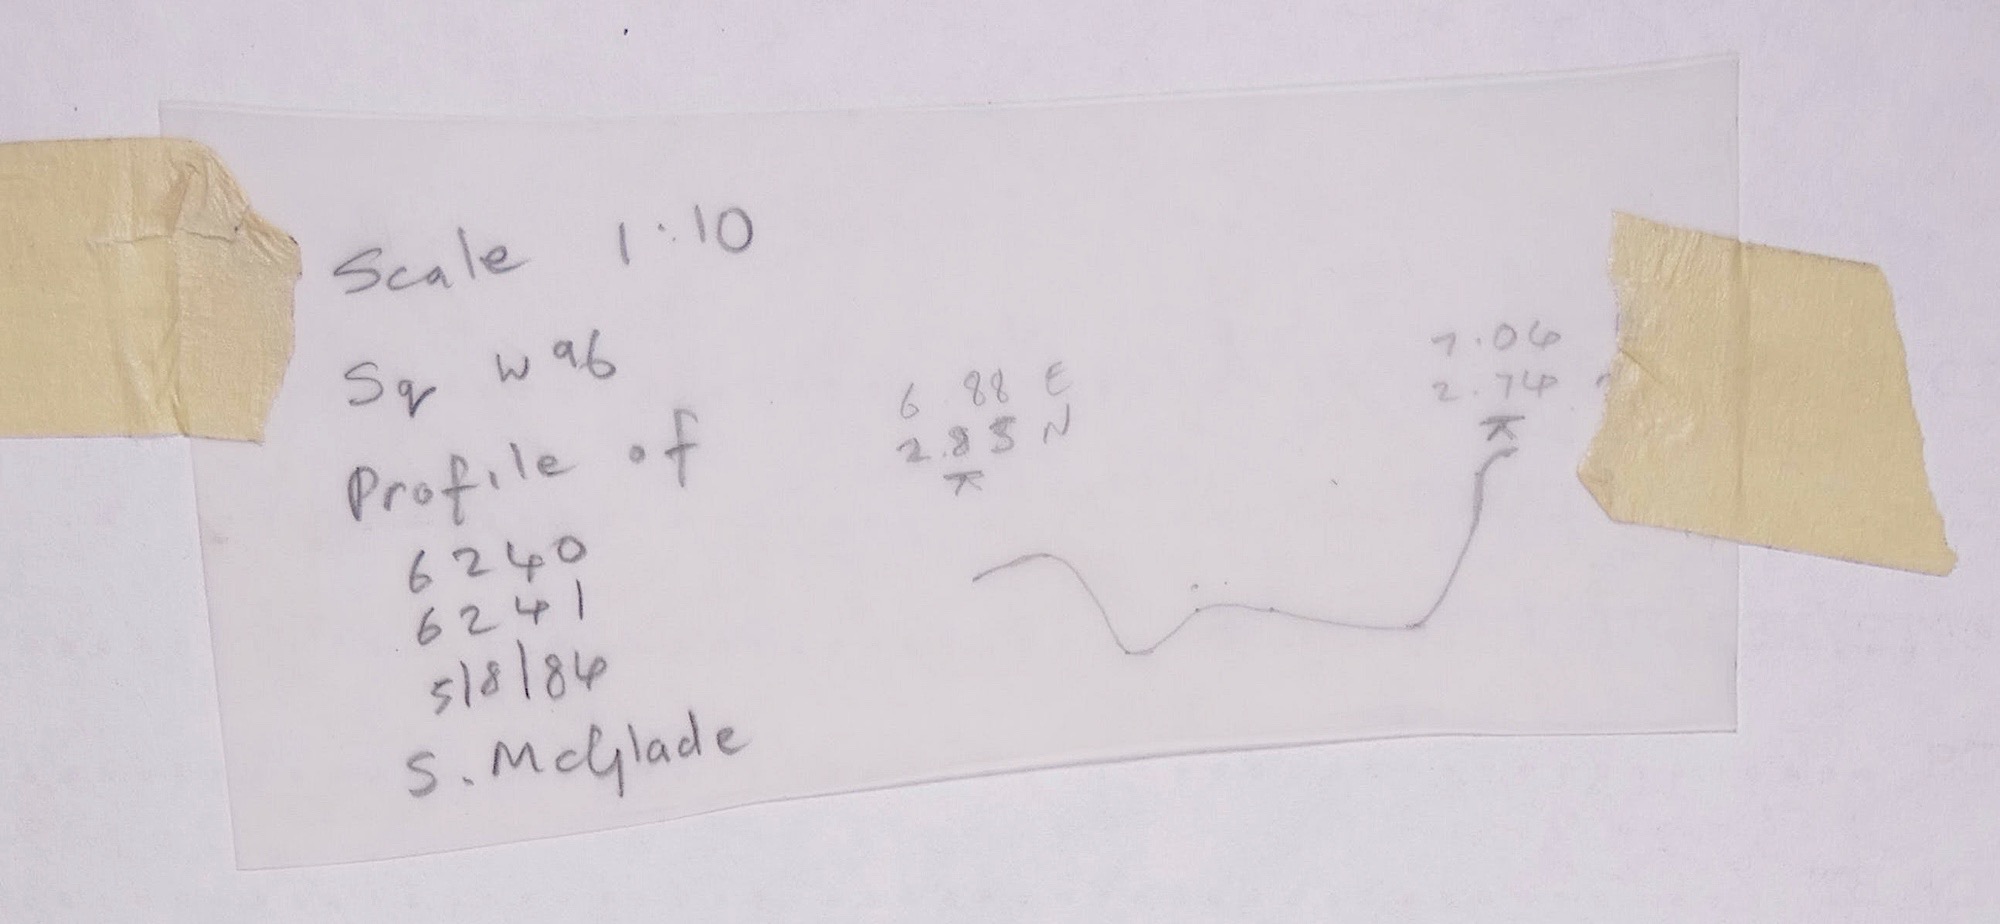 Scale 1:10
Sq W96
Profile of
6240
6241
5/8/84
S. McGlade
6.88 E
2.85 N
7.06
2.74